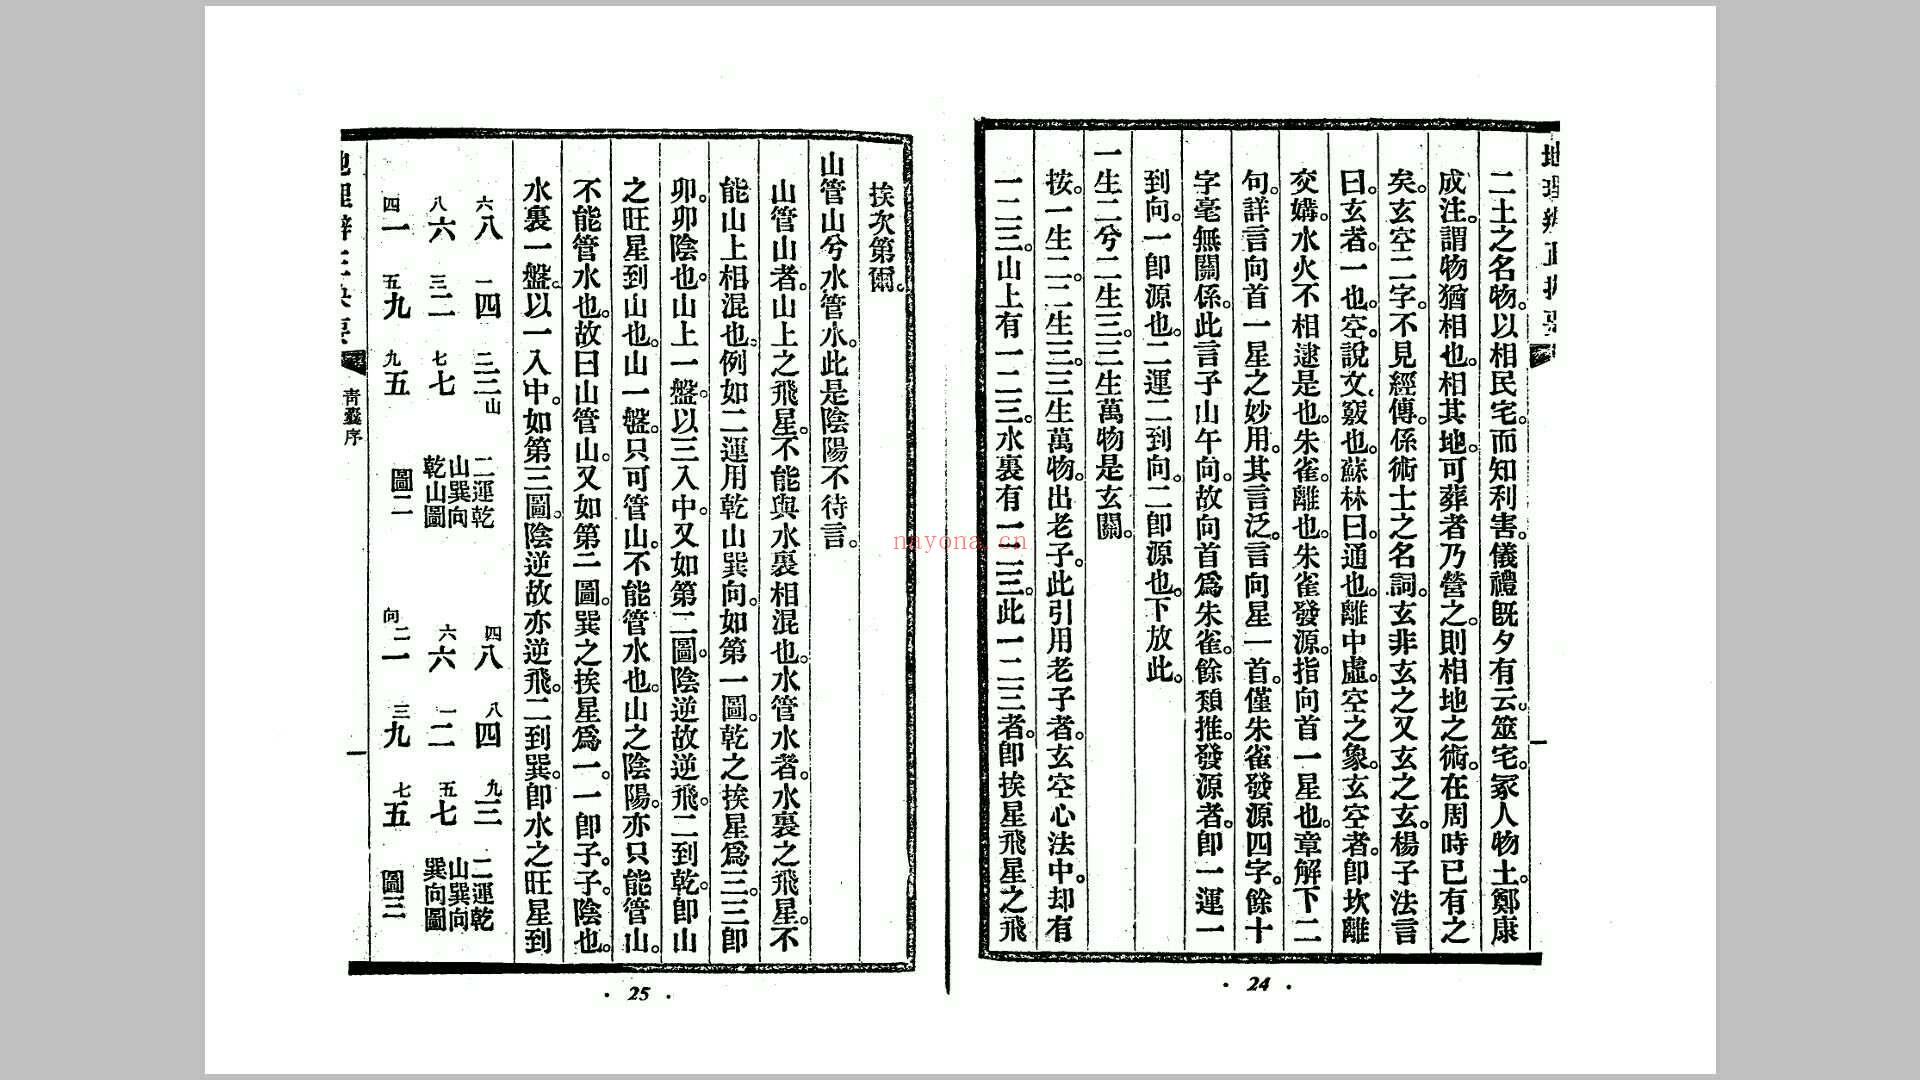 二土之名物。以相民宅。而知利害。儀禮旣夕有云。筮宅。冢人物土。鄭康
成注。謂物猶相也。相其地。可葬者乃營之。則相地之術。在周時已有之
矣。玄空二字。不見經傳。係術士之名詞。玄非玄之又玄之玄。楊子法言
曰。玄者。一也。空。說文。竅也。蘇林曰。通也。離中虛。空之象。玄空者。卽坎離
交媾。水火不相逮是也。朱雀。離也。朱雀發源。指向首一星也。章解下二
句。詳言向首一星之妙用。其言泛。言向星一首。僅朱雀發源四字。餘十
字毫無關係。此言子山午向。故向首爲朱雀。餘類推。發源者。卽一運一
到向。一卽源也。二運二到向。二卽源也。下放此。
一生二兮二生三。三生萬物是玄關。
按。一生二。二生三。三生萬物。出老子。此引用老子者。玄空心法中。却有
一二三。山上有一二三。水裏有一二三。此一二三者。卽挨星飛星之飛
24
挨次第爾。
山管山兮水管水。此是陰陽不待言。
山管山者。山上之飛星。不能與水裏相混也。水管水者。水裏之飛星。不
能山上相混也。例如二運用乾山巽向。如第一圖。乾之挨星爲三。三卽
卯。卯陰也。山上一盤。以三入中。又如第二圖。陰逆故逆飛。二到乾。卽山
之旺星到山也。山一盤。只可管山。不能管水也。山之陰陽。亦只能管山。
不能管水也。故曰山管山。又如第二圖。巽之挨星爲一。一卽子。子。陰也。
水裏一盤。以一入中。如第三圖。陰逆故亦逆飛。二到巽。卽水之旺星到
六八 一四 二三山
八六 三二 七七
四一 五九 九五
二運乾
山巽向
乾山圖
圖二
四八 八四 九三
六六 一二 五七
向二一 三九 七五
二運乾
山巽向
巽向圖
圖三
靑囊序
一
25
nayona.cn